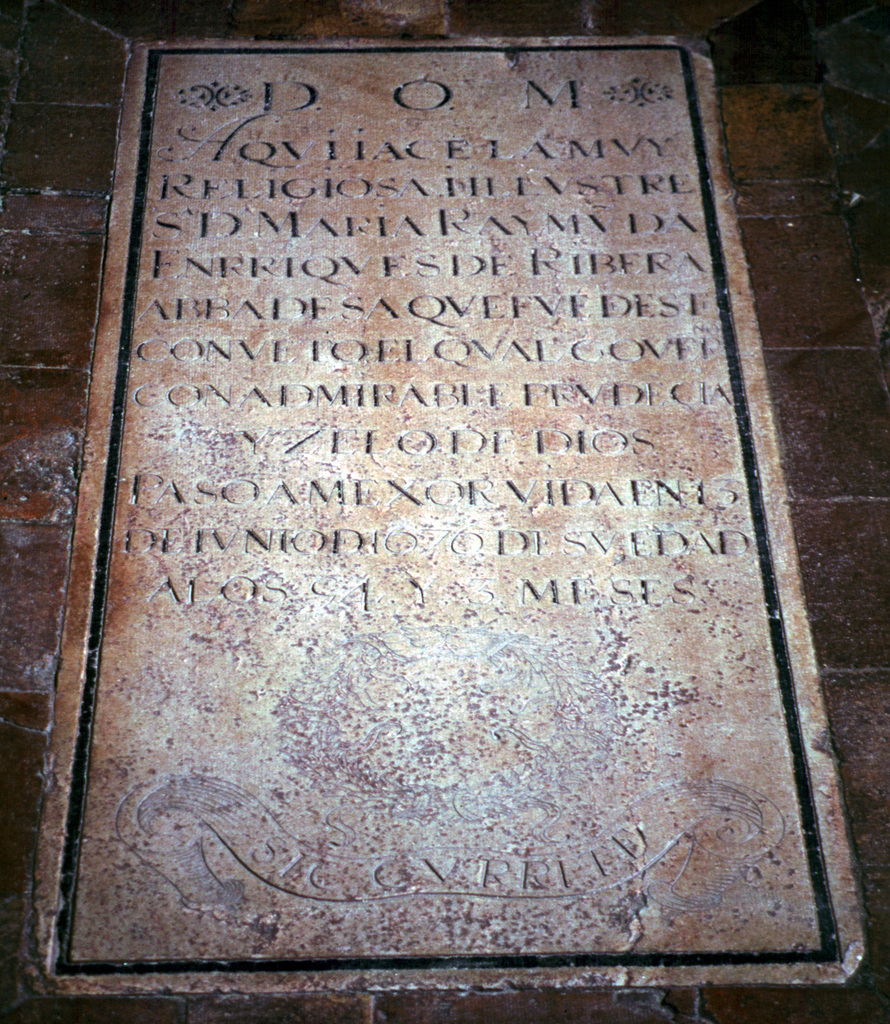 D. O. M
AQVI IACE LA MVY
RELIGIOSA. E ILLVSTRE
Sª Dª MARIA RAYMVDA
ENRRIQVES DE RIBERA
ABBADESA QVE FVE DESE
CONVETO EL QVAL GOVER
CON ADMIRABLE PRVDECIA
Y ZELO. DE DIOS
PASO A MEXOR VIDA EN 13
DE IVNIO D 1670 DE SV EDAD
A LOS 54. Y 3 MESES.
SIC